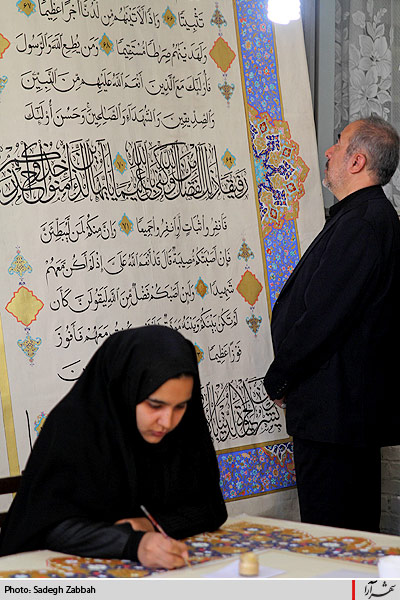 تَثْبِيتًا ٦٦ وَإِذًا لَآتَيْنَاهُمْ مِنْ لَدُنَّا أَجْرًا عَظِيمًا ٦٧
وَلَهَدَيْنَاهُمْ صِرَاطًا مُسْتَقِيمًا ٦٨ وَمَنْ يُطِعِ اللَّهَ وَالرَّسُولَ
فَأُولَٰئِكَ مَعَ الَّذِينَ أَنْعَمَ اللَّهُ عَلَيْهِمْ مِنَ النَّبِيِّينَ
وَالصِّدِّيقِينَ وَالشُّهَدَاءِ وَالصَّالِحِينَ وَحَسُنَ أُولَٰئِكَ
رَفِيقًا ٦٩ ذَٰلِكَ الْفَضْلُ مِنَ اللَّهِ وَكَفَىٰ بِاللَّهِ عَلِيمًا يَا أَيُّهَا الَّذِينَ آمَنُوا خُذُوا حِذْرَكُمْ
فَانْفِرُوا ثُبَاتٍ أَوِ انْفِرُوا جَمِيعًا ٧١ وَإِنَّ مِنْكُمْ لَمَنْ لَيُبَطِّئَنَّ
فَإِنْ أَصَابَتْكُمْ مُصِيبَةٌ قَالَ قَدْ أَنْعَمَ اللَّهُ عَلَيَّ إِذْ لَمْ أَكُنْ مَعَهُمْ
شَهِيدًا وَلَئِنْ أَصَابَكُمْ فَضْلٌ مِنَ اللَّهِ لَيَقُولَنَّ كَأَنْ
لَمْ تَكُنْ بَيْنَكُمْ وَبَيْنَهُ مَوَدَّةٌ مَعَهُمْ فَأَفُوزَ
فَوْزًا عَظِيمًا
Photo: Sadegh Zabbah
شهرآرا